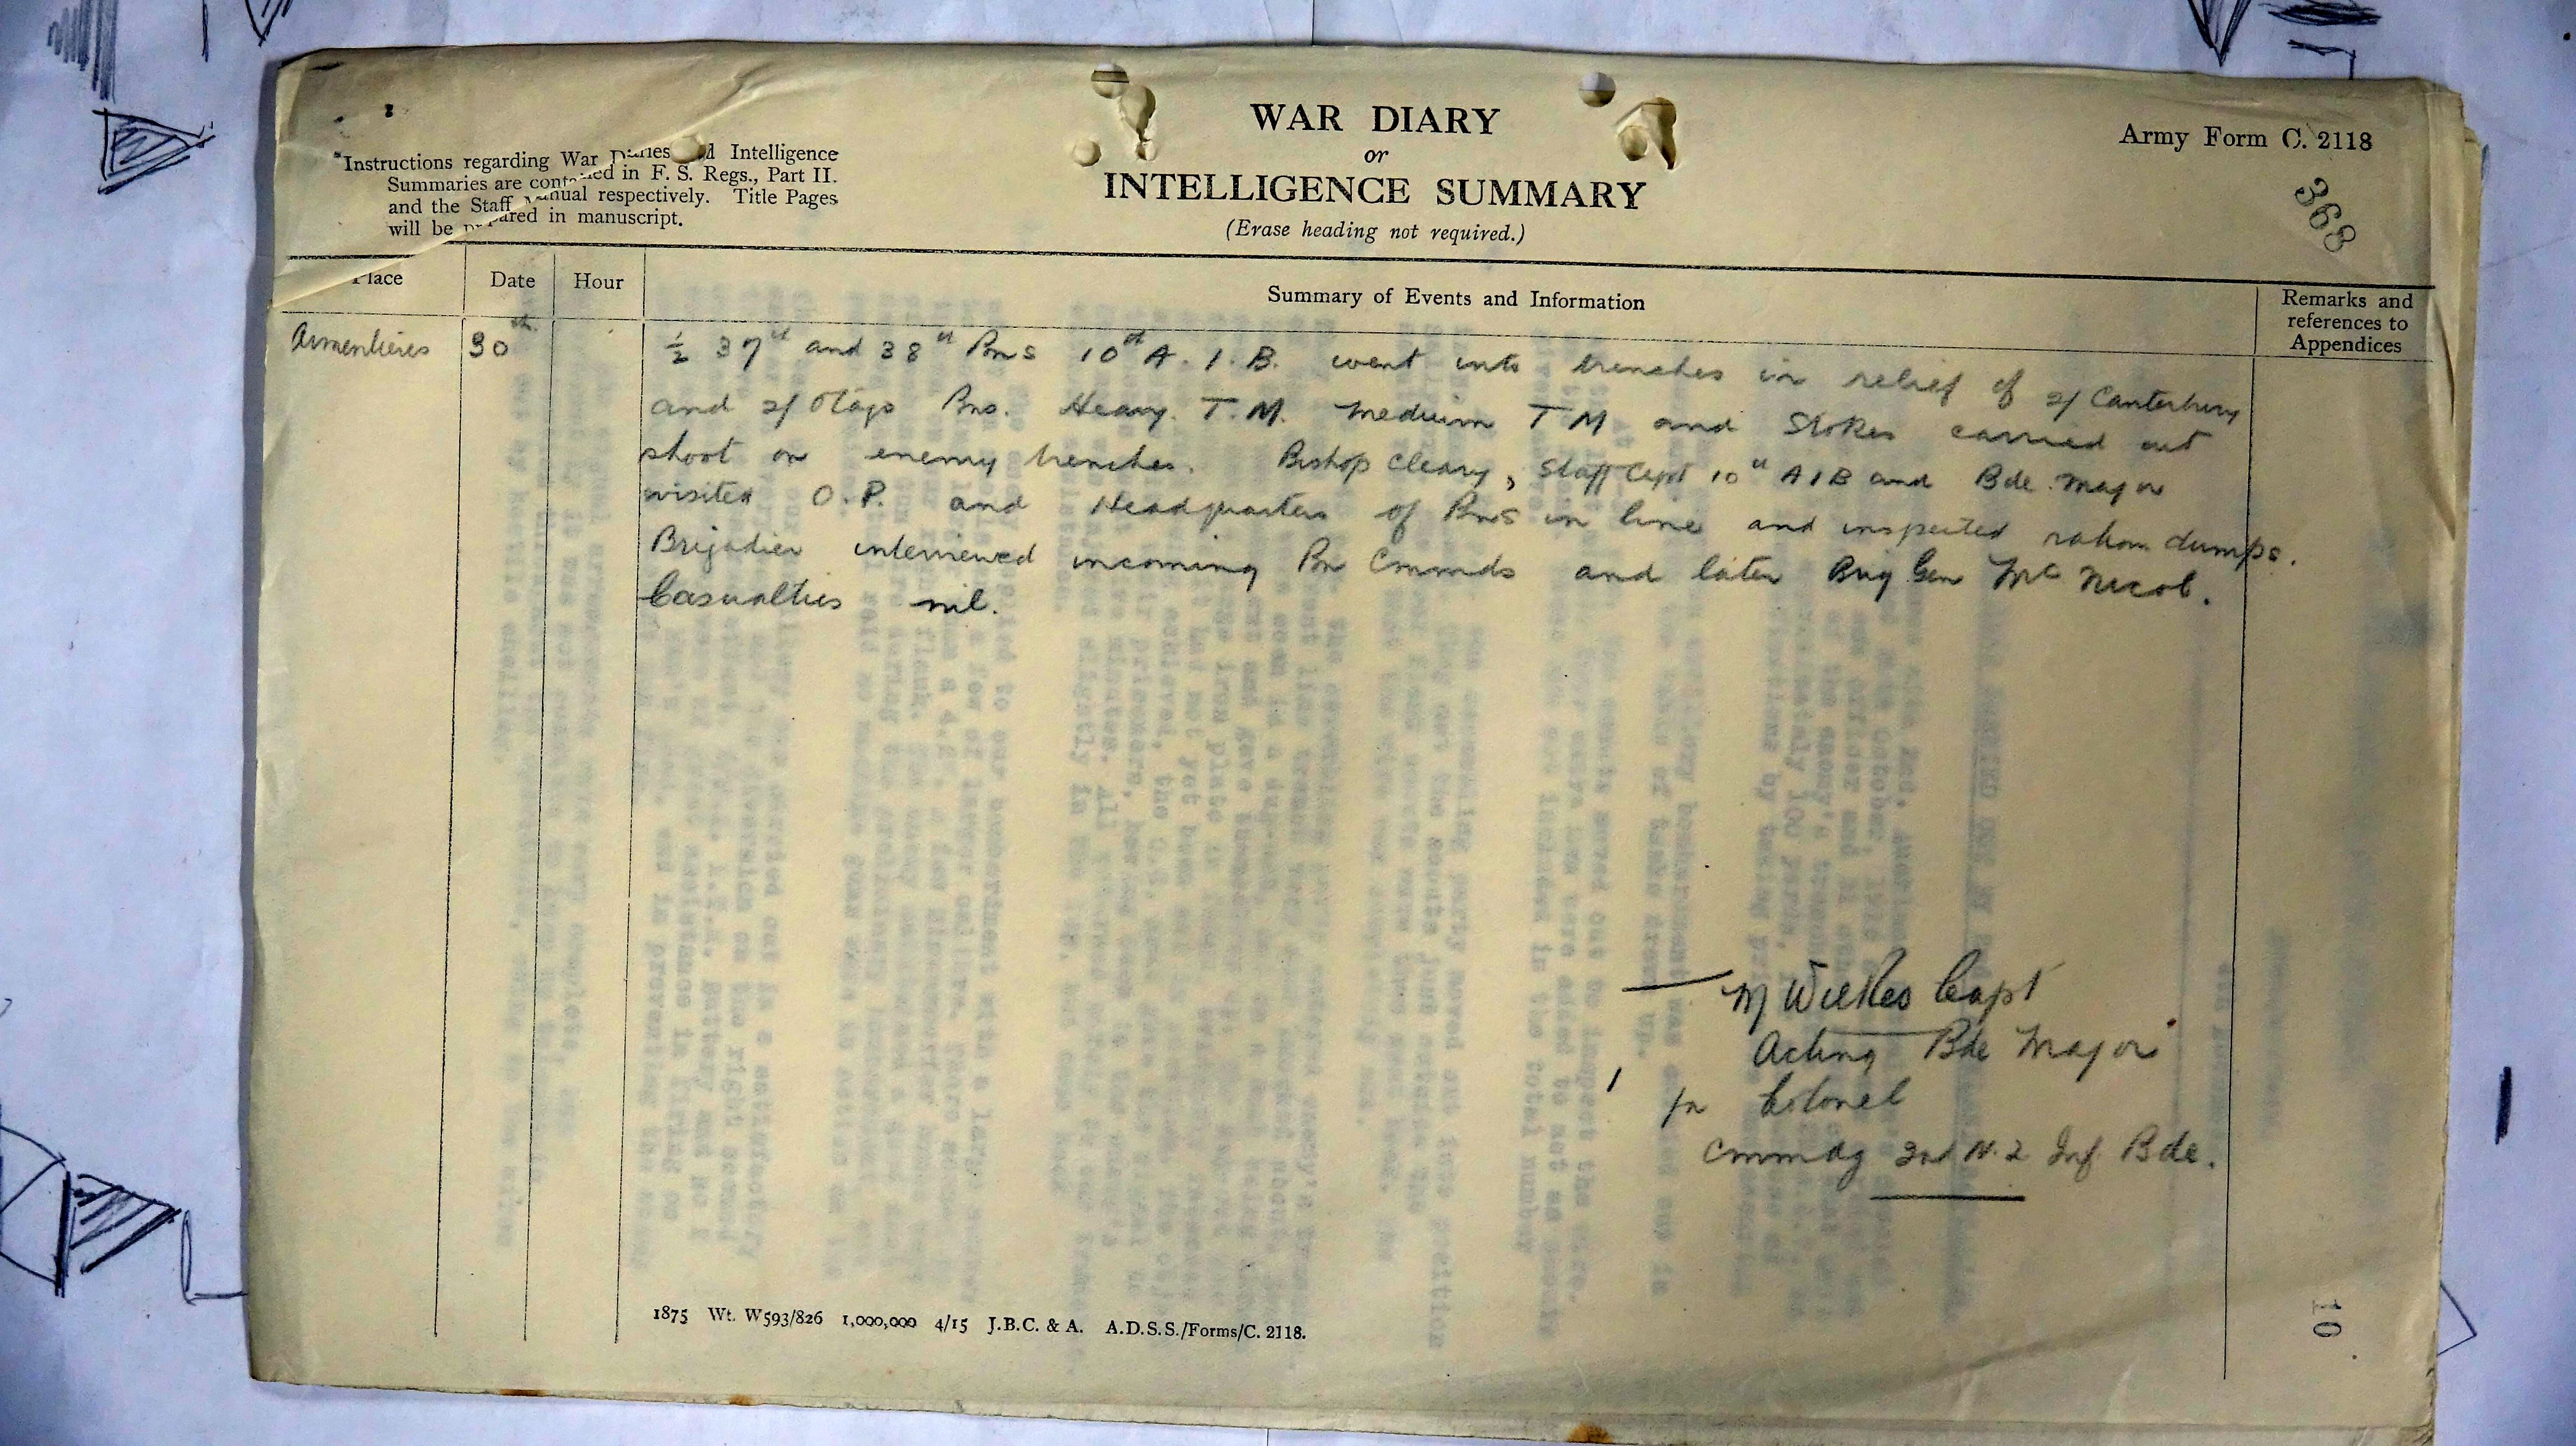 WAR DIARY
or
INTELLIGENCE SUMMARY
(Erase heading not required.)
Army Form C. 2118
368
Instructions regarding War Diaries and Intelligence
Summaries are contained in F. S. Regs., Part II.
and the Staff Manual respectively. Title Pages
will be prepared in manuscript.
Place Date Hour Summary of Events and Information Remarks and references to Appendices
Armentieres 30th ½ 37th and 38th Bns 10th A.I.B. went into trenches in relief of 2/ Canterbury
and 2/ Otago Bns. Heavy T.M. Medium T M and Stokes carried out
shoot on enemy trenches. Bishop Cleary, Staff Capt 10th A I B and Bde. Major
visited O.P. and Headquarters of Bns in line and inspected ration dumps.
Brigadier interviewed incoming Bn Cmmds and later Brig Gen McNicol.
Casualties nil.
M Wilkes Capt
Acting Bde Major
for Colonel
Cmmdg 2nd N.Z Inf Bde.
1875 Wt. W593/826 1,000,000 4/15 J.B.C. & A. A.D.S.S./Forms/C. 2118.
10